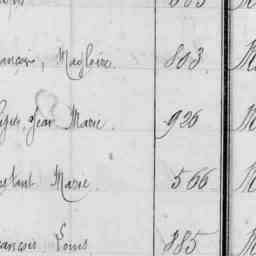 ançois, Magloire. 803. M
Jean Marie. 926 M
stant Marie. 566 M
ançois Louis 885 M